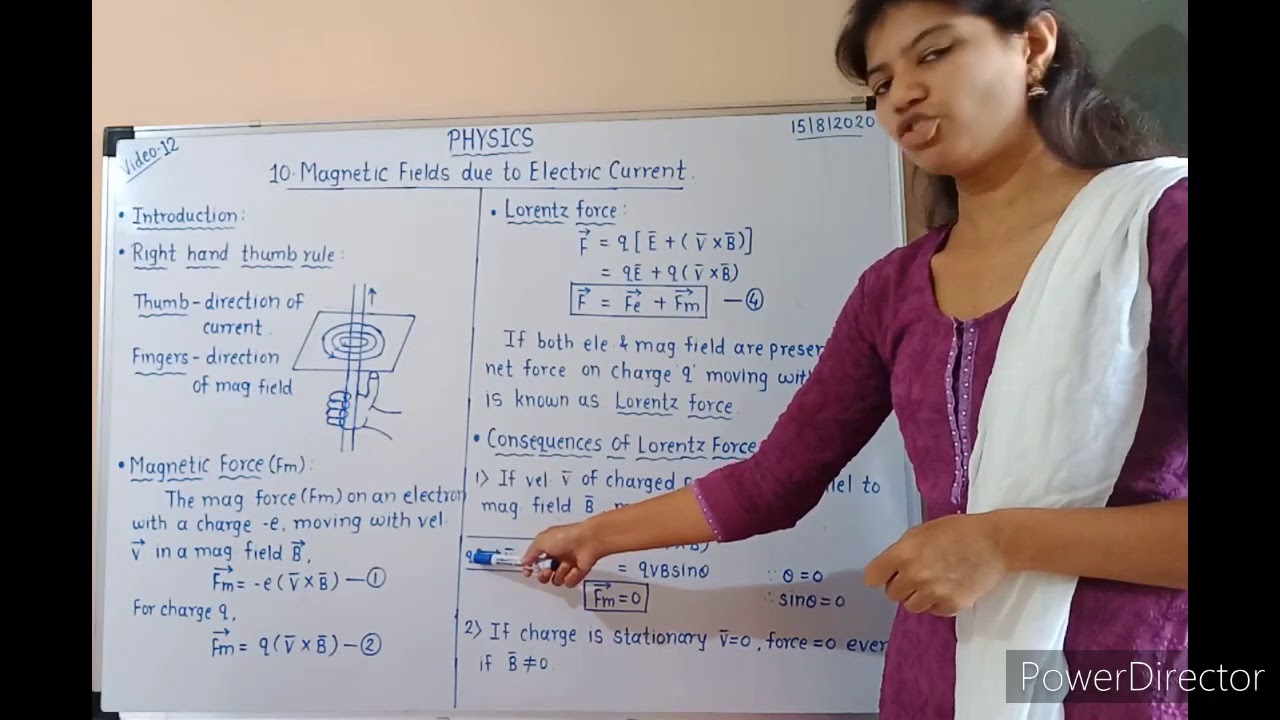 Video-12
PHYSICS
15/8/2020
10. Magnetic Fields due to Electric Current.
• Introduction:
• Right hand thumb rule:
Thumb - direction of
current.
Fingers - direction
of mag field
• Magnetic Force (Fm):
The mag force (Fm) on an electron
with a charge -e, moving with vel.
v⃗ in a mag field B⃗,
F⃗m = -e (v̄ × B̄) — ①
For charge q,
F⃗m = q (v̄ × B̄) — ②
• Lorentz force:
F⃗ = q [Ē + (v̄ × B̄)]
= qĒ + q (v̄ × B̄)
F⃗ = F⃗e + F⃗m — ④
If both ele & mag field are
net force on charge 'q' moving
is known as Lorentz force.
• Consequences of Lorentz Force
1) If vel. v̄ of charged to
mag. field B̄
= qvBsinθ
∵ θ = 0
F⃗m = 0
∴ sinθ = 0
2) If charge is stationary v̄=0, force = 0 even
if B̄ ≠ 0.
PowerDirector